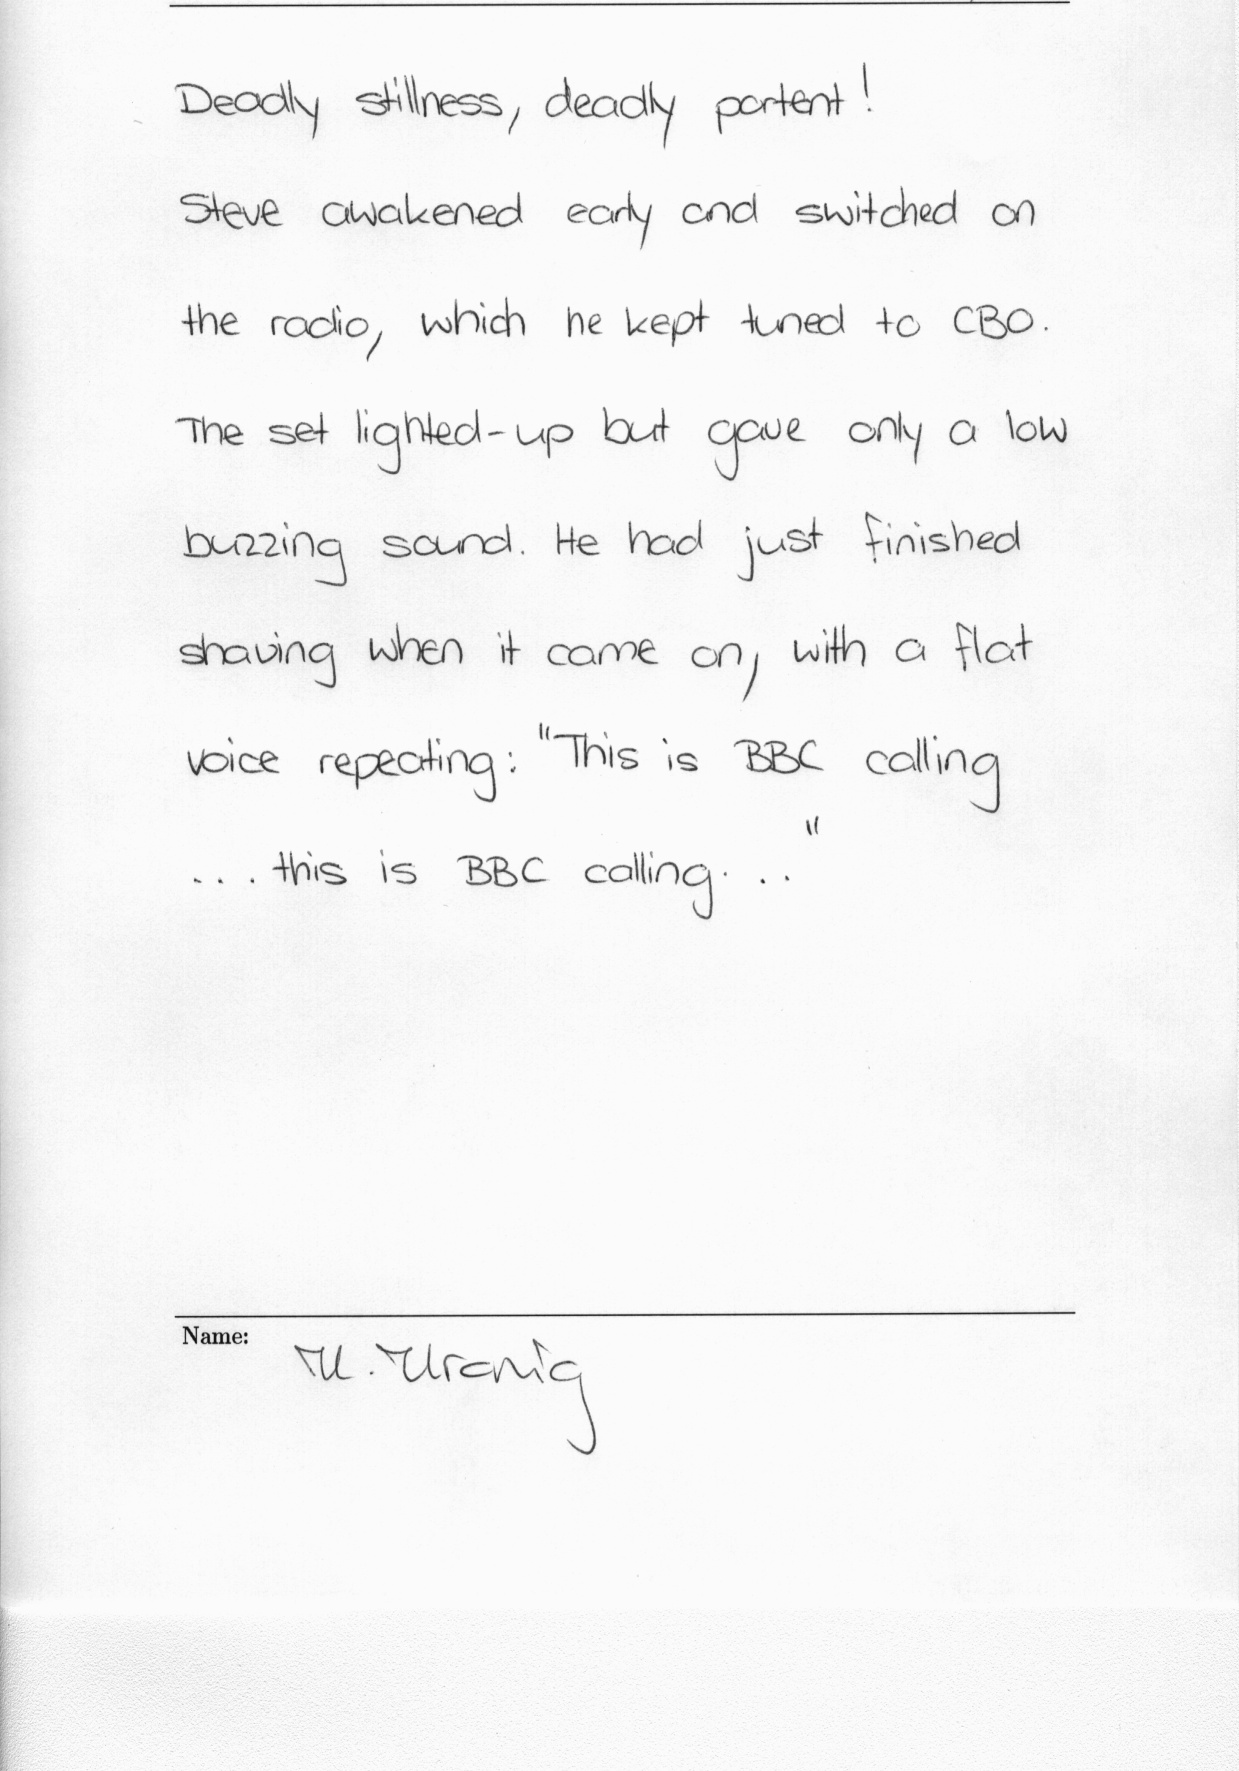 Deadly stillness, deadly portent!
Steve awakened early and switched on
the radio, which he kept tuned to CBO.
The set lighted-up but gave only a low
buzzing sound. He had just finished
shaving when it came on, with a flat
voice repeating: "This is BBC calling
... this is BBC calling..."
Name: